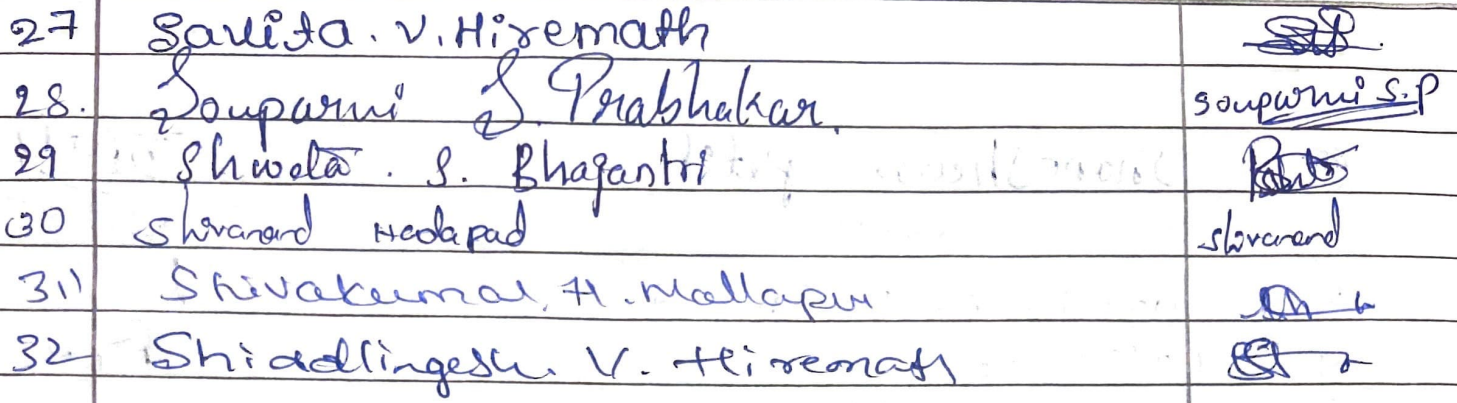 27 Savita. V. Hiremath
28. Souparni S. Prabhakar. Souparni S.P
29 Shweta. S. Bhajantri
30 Shivanand Hadapad Shivanand
31) Shivakumar. H. Mallapur
32 Shiddlingesh. V. Hiremath